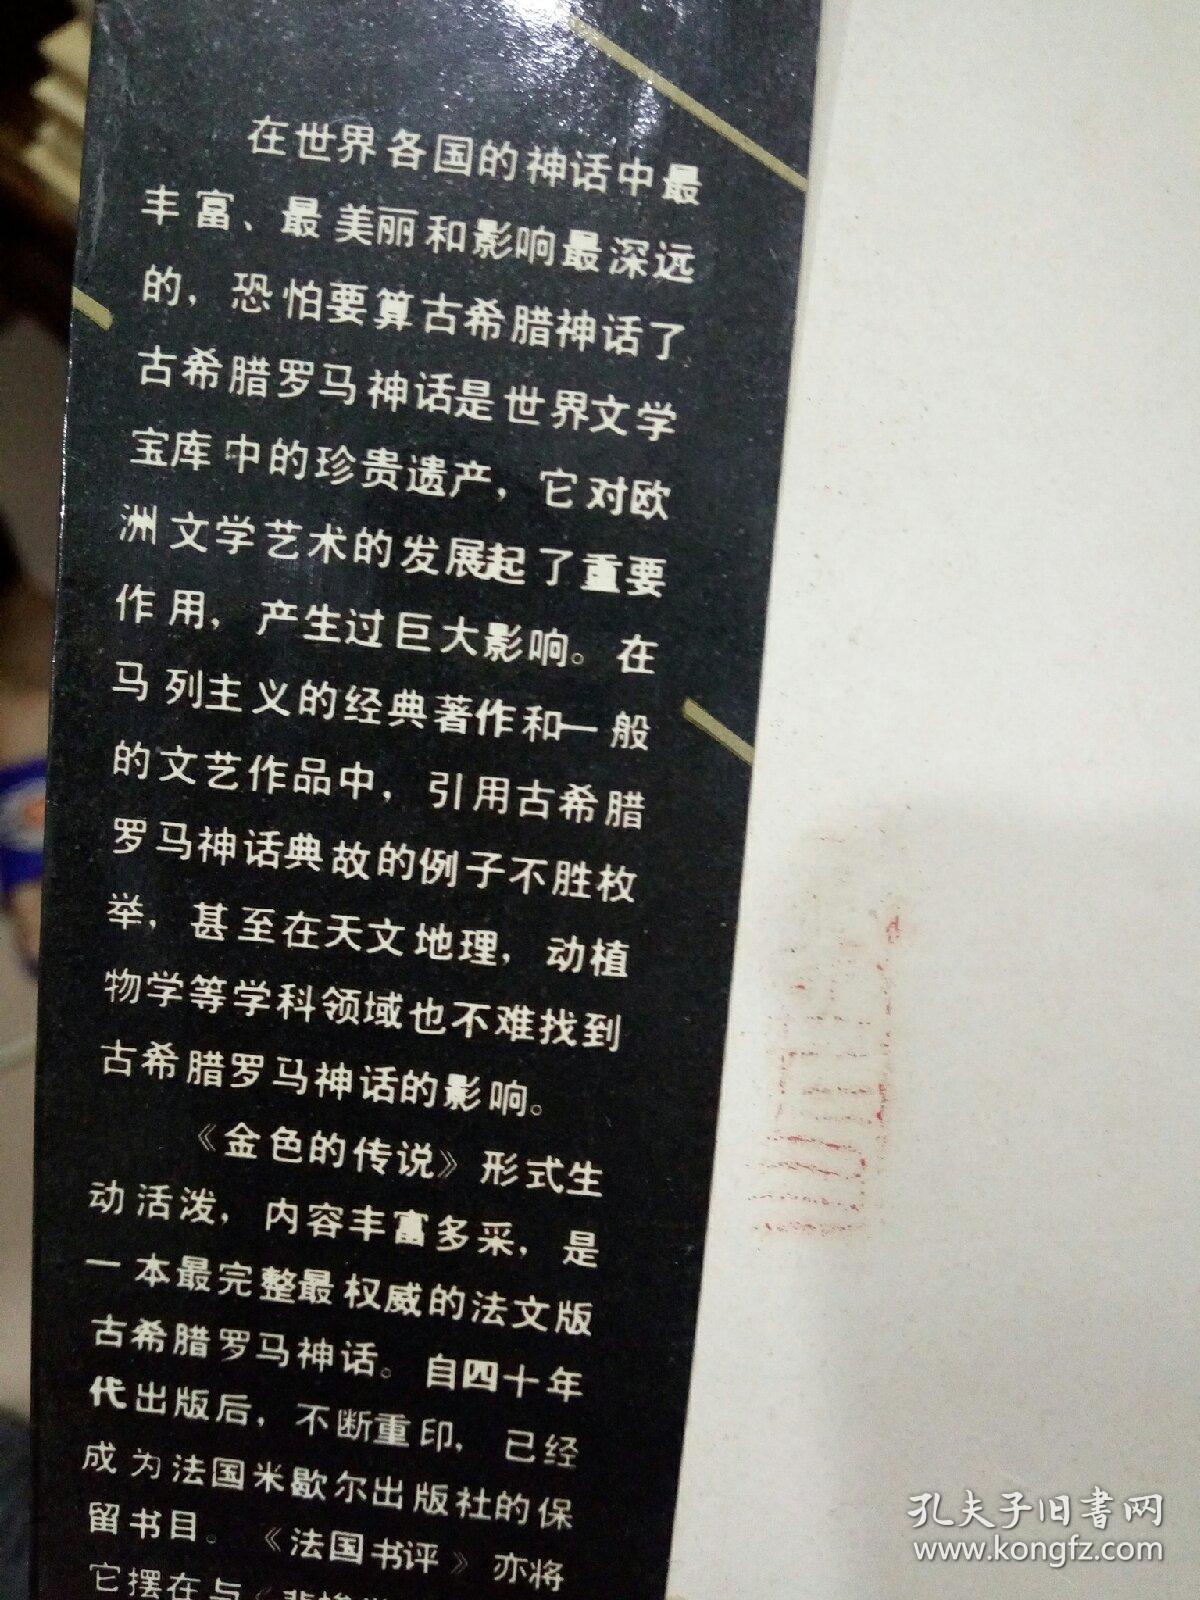 在世界各国的神话中最
丰富、最美丽和影响最深远
的，恐怕要算古希腊神话了
古希腊罗马神话是世界文学
宝库中的珍贵遗产，它对欧
洲文学艺术的发展起了重要
作用，产生过巨大影响。在
马列主义的经典著作和一般
的文艺作品中，引用古希腊
罗马神话典故的例子不胜枚
举，甚至在天文地理，动植
物学等学科领域也不难找到
古希腊罗马神话的影响。
《金色的传说》形式生
动活泼，内容丰富多采，是
一本最完整最权威的法文版
古希腊罗马神话。自四十年
代出版后，不断重印，已经
成为法国米歇尔出版社的保
留书目。《法国书评》亦将
它摆在与《
孔夫子旧書网
www.kongfz.com